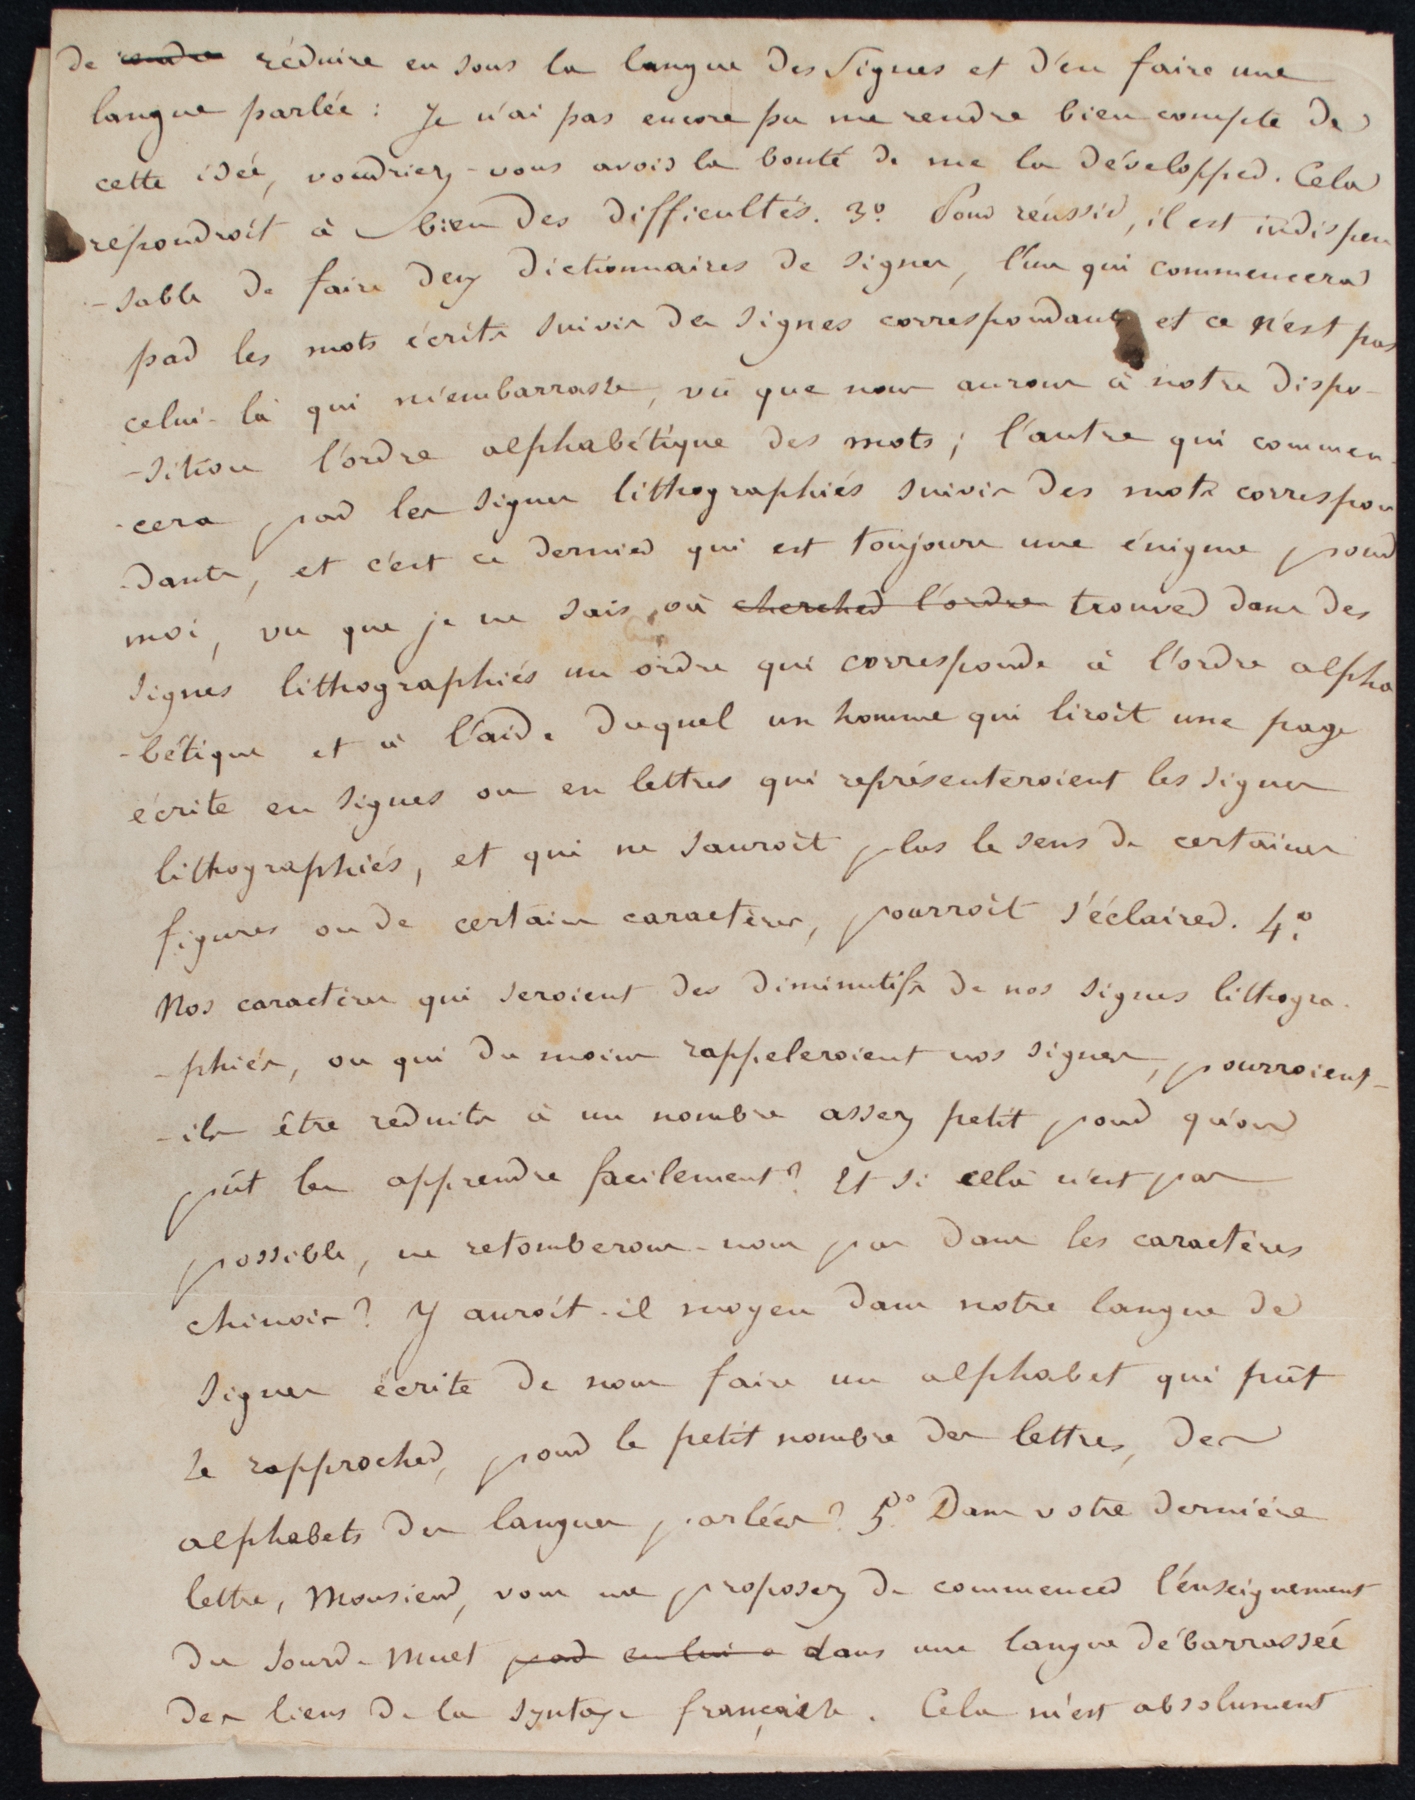 de rendre réduire en sons la langue des Signes et d'en faire une
langue parlée : Je n'ai pas encore pu me rendre bien compte de
cette idée, voudriez-vous avoir la bonté de me la développer. Cela
répondroit à bien des difficultés. 3º Pour réussir, il est indispen
-sable de faire deux dictionnaires de signes, l'un qui commencera
par les mots écrits suivis des signes correspondants et ce n'est pas
celui-là qui m'embarrasse, vu que nous aurons à notre dispo-
-sition l'ordre alphabétique des mots ; l'autre qui commen-
-cera par les signes lithographiés suivis des mots correspon
-dants, et c'est ce dernier qui est toujours une énigme pour
moi, vu que je ne sais où chercher l'ordre trouver dans des
signes lithographiés un ordre qui corresponde à l'ordre alpha
-bétique et à l'aide duquel un homme qui liroit une page
écrite en signes ou en lettres qui représenteroient les signes
lithographiés, et qui ne sauroit plus le sens de certaines
figures ou de certains caractères, pourroit s'éclairer. 4º.
Nos caractères qui seroient des diminutifs de nos signes lithogra-
-phiés, ou qui du moins rappeleroient nos signes, pourroient-
-ils être réduits à un nombre assez petit pour qu'on
pût les apprendre facilement ? Et si cela n'est pas
possible, ne retomberons-nous pas dans les caractères
chinois ? Y auroit-il moyen dans notre langue de
signes écrite de nous faire un alphabet qui pût
se rapprocher, pour le petit nombre des lettres, des
alphabets des langues parlées ? 5º. Dans votre dernière
lettre, Monsieur, vous me proposez de commencer l'énseignement
du sourd-muet par dans une langue débarrassée
des liens de la syntaxe française. Cela m'est absolument